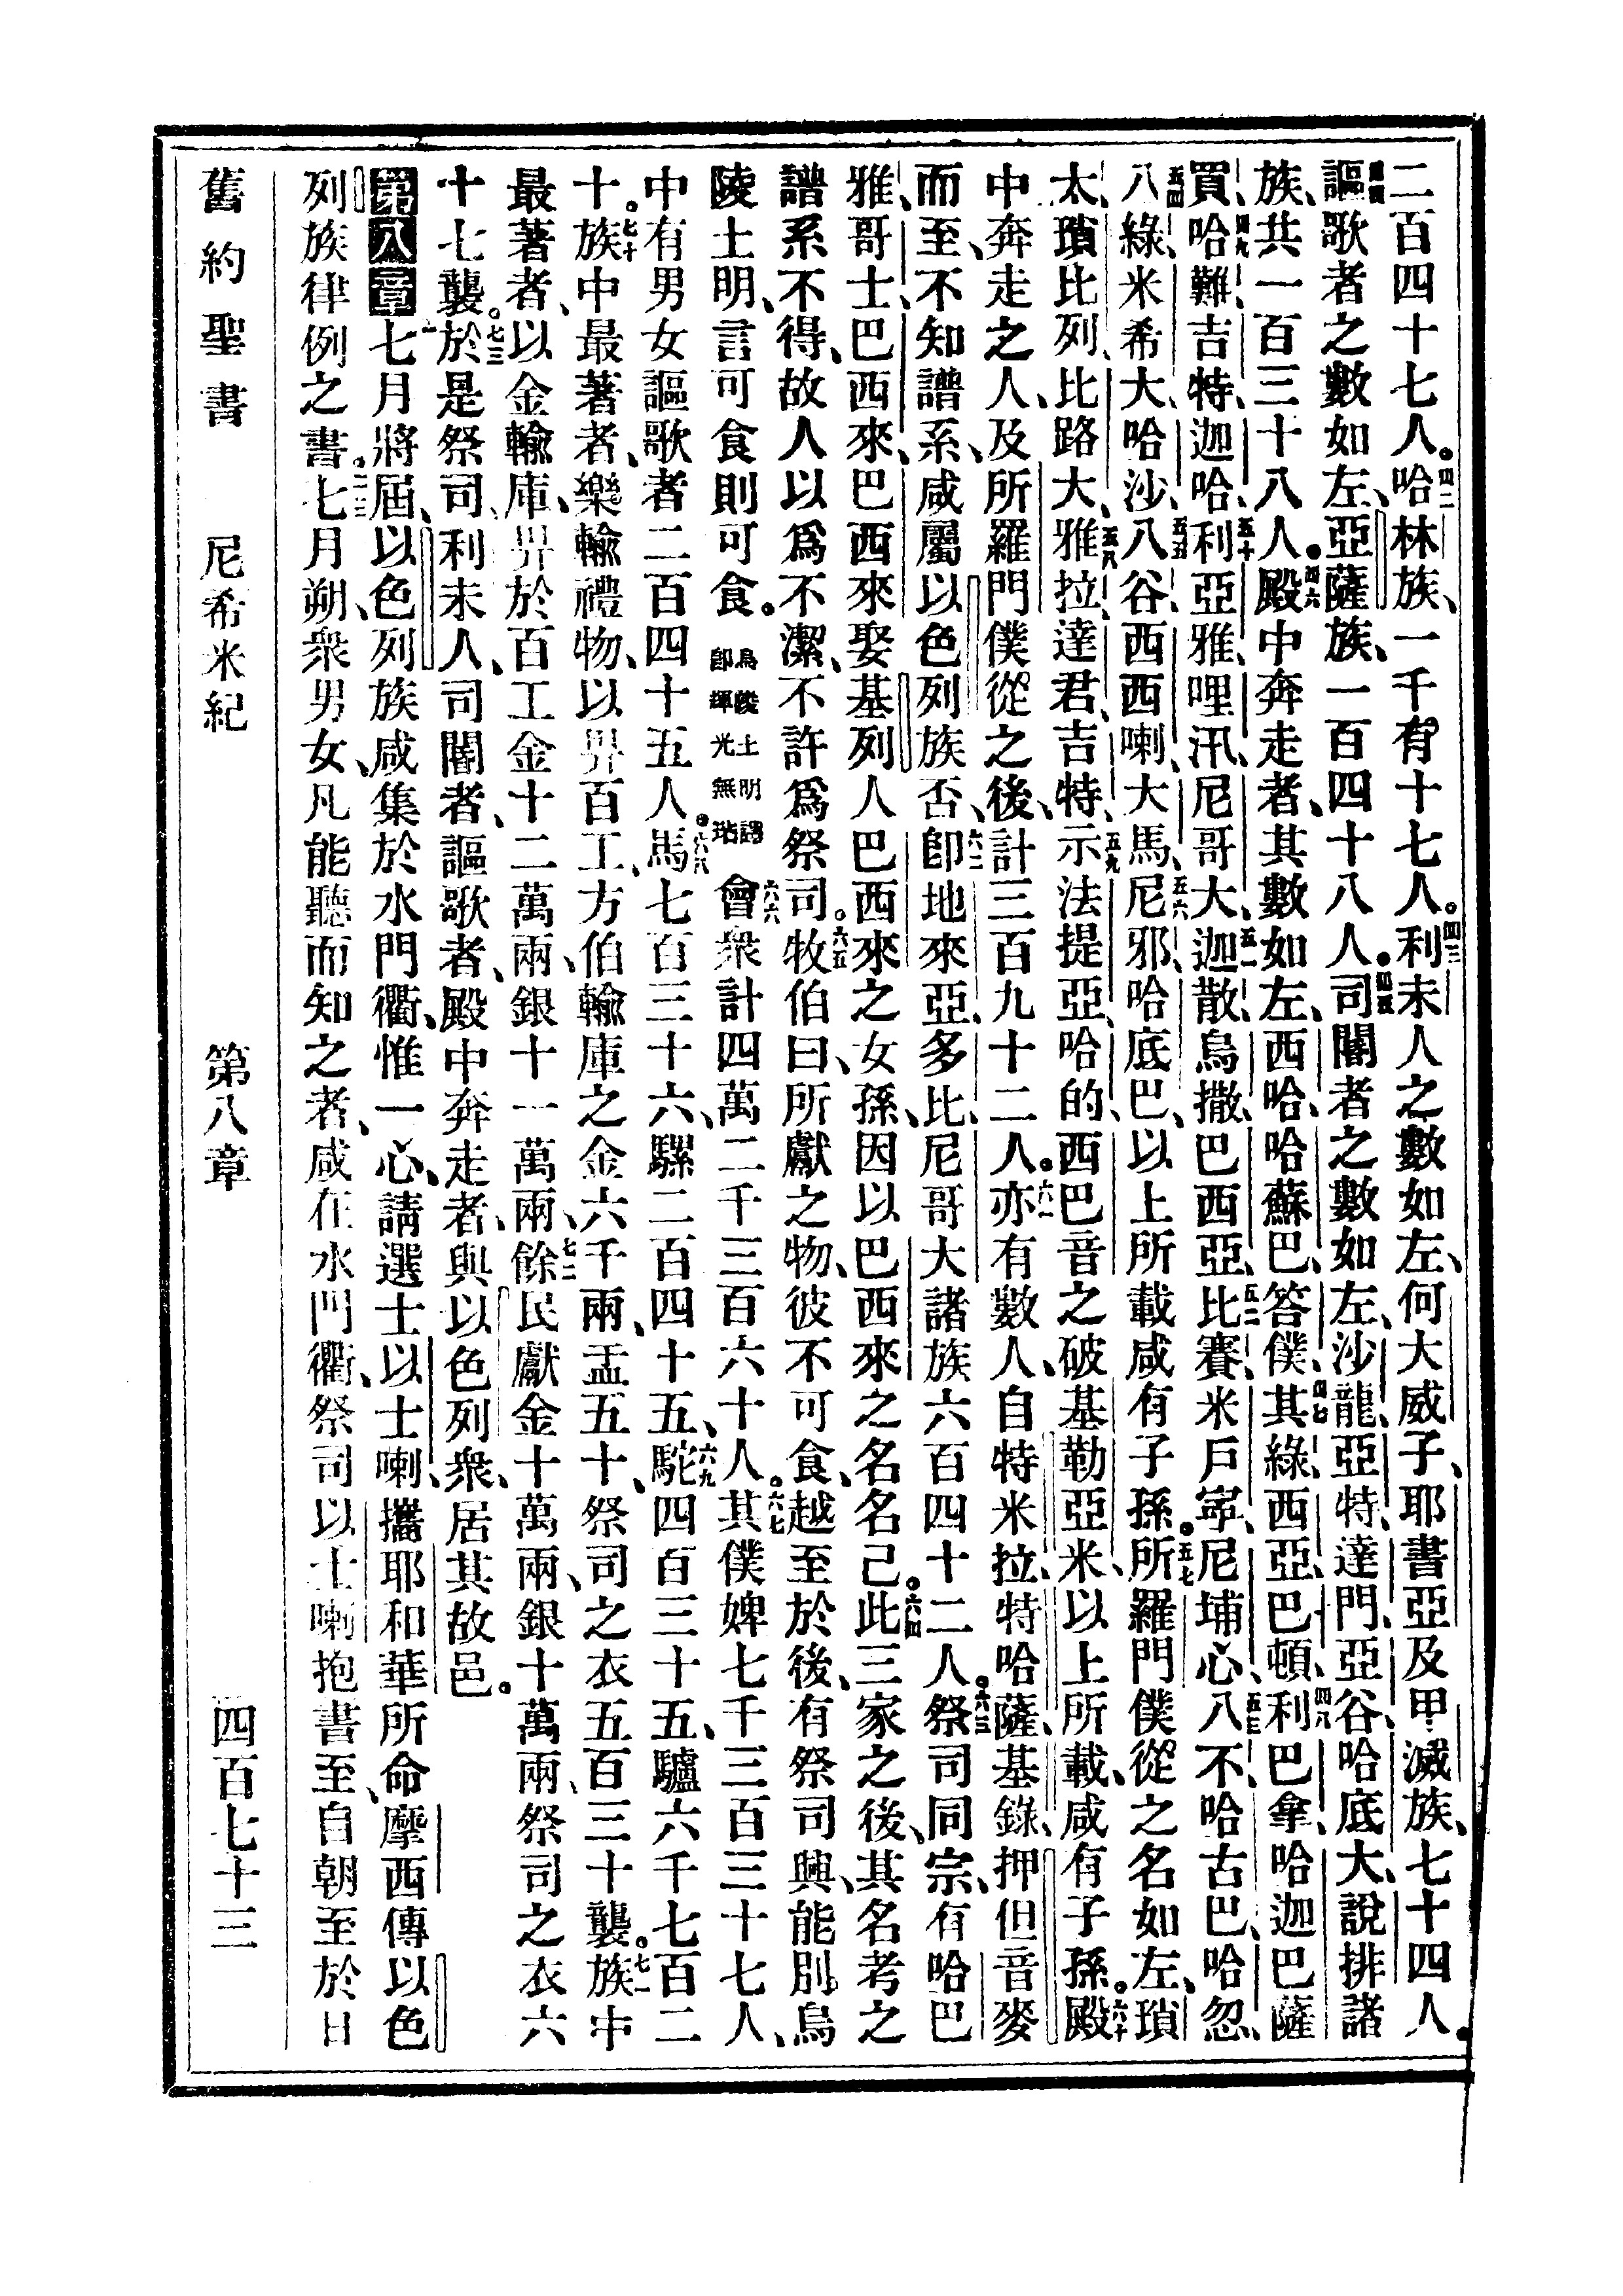 二百四十七人。四二哈林族、一千有十七人。四三利未人之數如左、何大威子、耶書亞及甲滅族、七十四人。
四四謳歌者之數如左、亞薩族、一百四十八人。四五司閽者之數如左、沙龍、亞特、達門、亞谷、哈底大、說排諸
族、共一百三十八人。四六殿中奔走者、其數如左、西哈、哈蘇巴、答僕、其四七綠、西亞、巴頓、四八利巴拿、哈迦巴、薩
買、四九哈難、吉特、迦哈、五十利亞雅、哩汛、尼哥大、五一迦散、烏撒、巴西亞、五二比賽、米戶寧、尼埔心、五三八不、哈古巴、哈忽、
五四八綠、米希大、哈沙、五五八谷、西西喇、大馬、五六尼邪、哈底巴、以上所載咸有子孫。五七所羅門僕從之名如左、瑣
太、瑣比列、比路大、五八雅拉、達君、吉特、五九示法提亞、哈的、西巴音之破基勒、亞米、以上所載、咸有子孫。六十殿
中奔走之人、及所羅門僕從之後、計三百九十二人。六一亦有數人、自特米拉、特哈薩、基錄、押但音麥
而至、不知譜系、咸屬以色列族否、六二卽地來亞、多比、尼哥大諸族六百四十二人。六三祭司同宗、有哈巴
雅、哥士、巴西來、巴西來娶基列人巴西來之女孫、因以巴西來之名名己。六四此三家之後、其名考之
譜系不得、故人以爲不潔、不許爲祭司。六五牧伯曰、所獻之物、彼不可食、越至於後、有祭司興、能別烏
陵土明、言可食則可食。烏陵土明譯卽輝光無玷六六會衆計四萬二千三百六十人。六七其僕婢七千三百三十七人、
中有男女謳歌者二百四十五人。六八馬七百三十六、騾二百四十五、六九駝四百三十五、驢六千七百二
十。七十族中最著者、樂輸禮物、以畀百工、方伯輸庫之金六千兩、盂五十、祭司之衣五百三十襲。七一族中
最著者、以金輸庫、畀於百工金十二萬兩、銀十一萬兩、七二餘民獻金十萬兩、銀十萬兩、祭司之衣六
十七襲。七三於是祭司、利未人、司閽者、謳歌者、殿中奔走者、與以色列衆、居其故邑。
第八章 一七月將屆、以色列族咸集於水門衢、惟一心、請選士以士喇、攜耶和華所命摩西傳以色
列族律例之書。二七月朔、衆男女、凡能聽而知之者、咸在水門衢、祭司以士喇抱書至、三自朝至於日
舊約聖書 尼希米紀 第八章 四百七十三